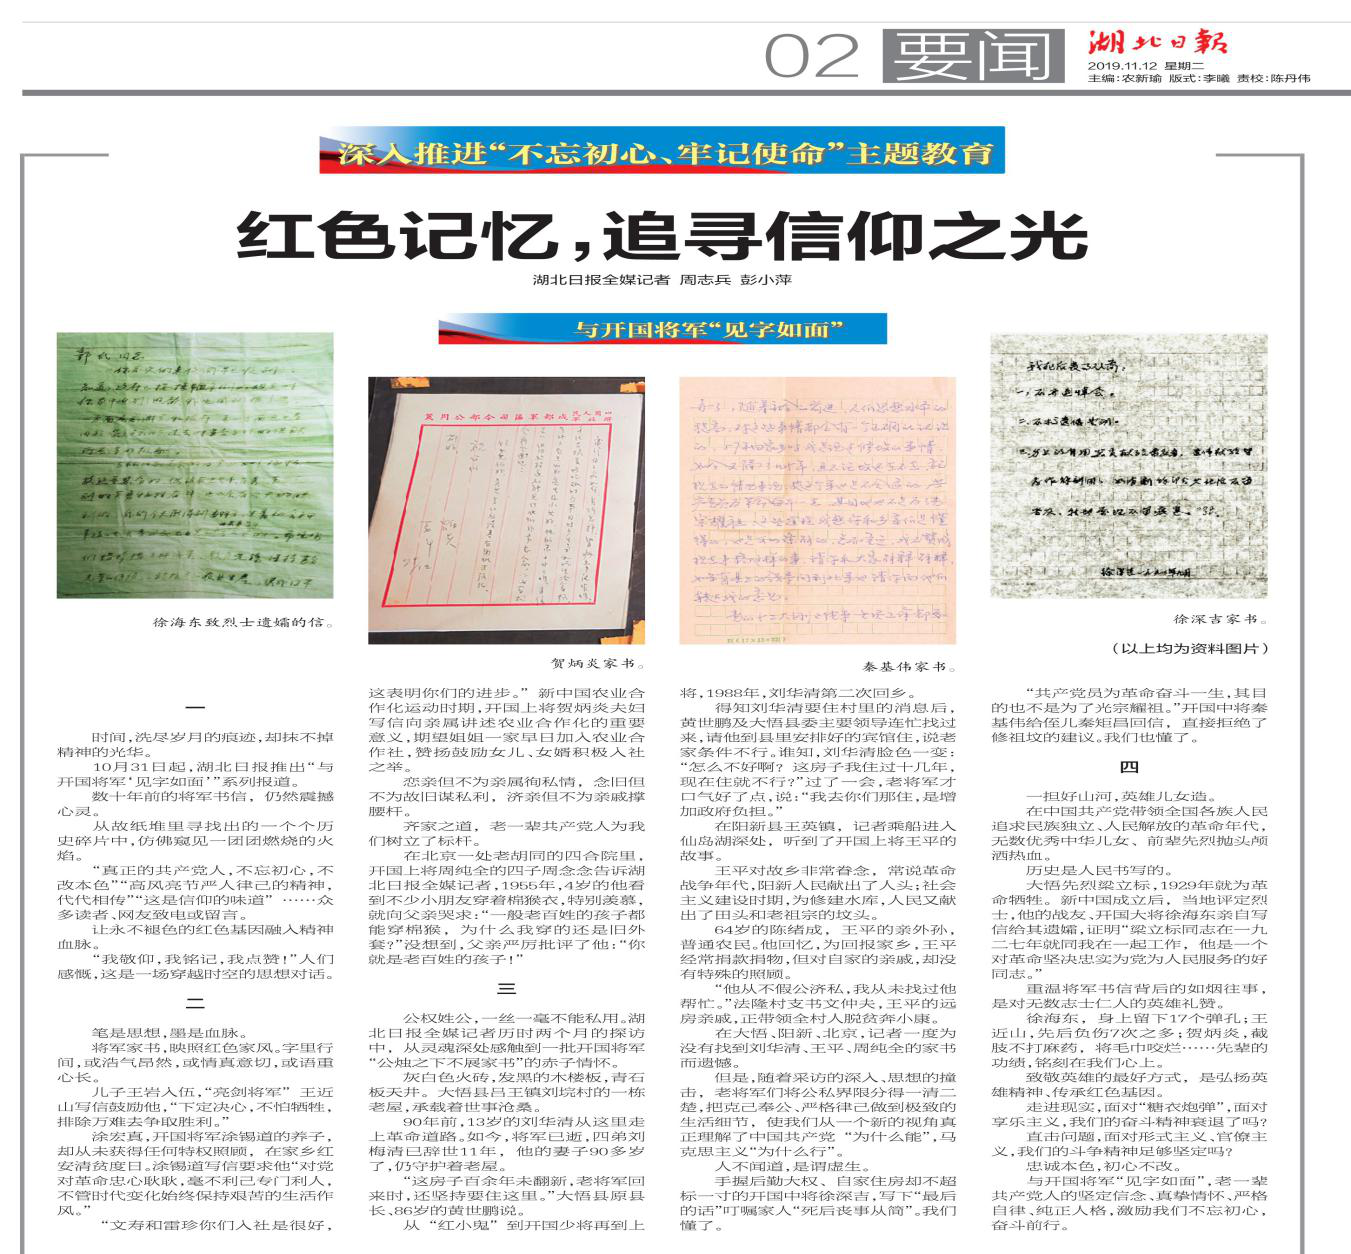 02 要闻
湖北日报
2019.11.12 星期二
主编:农新瑜 版式:李曦 责校:陈丹伟
深入推进“不忘初心、牢记使命”主题教育
红色记忆,追寻信仰之光
湖北日报全媒记者 周志兵 彭小萍
与开国将军“见字如面”
徐海东致烈士遗孀的信。
贺炳炎家书。
秦基伟家书。
徐深吉家书。
(以上均为资料图片)
一
时间,洗尽岁月的痕迹,却抹不掉
精神的光华。
10月31日起,湖北日报推出“与
开国将军‘见字如面’”系列报道。
数十年前的将军书信,仍然震撼
心灵。
从故纸堆里寻找出的一个个历
史碎片中,仿佛窥见一团团燃烧的火
焰。
“真正的共产党人,不忘初心,不
改本色”“高风亮节严人律己的精神,
代代相传”“这是信仰的味道”……众
多读者、网友致电或留言。
让永不褪色的红色基因融入精神
血脉。
“我敬仰,我铭记,我点赞!”人们
感慨,这是一场穿越时空的思想对话。
二
笔是思想,墨是血脉。
将军家书,映照红色家风。字里行
间,或浩气昂然,或情真意切,或语重
心长。
儿子王岩入伍,“亮剑将军”王近
山写信鼓励他,“下定决心,不怕牺牲,
排除万难去争取胜利。”
涂宏真,开国将军涂锡道的养子,
却从未获得任何特权照顾,在家乡红
安清贫度日。涂锡道写信要求他“对党
对革命忠心耿耿,毫不利己专门利人,
不管时代变化始终保持艰苦的生活作
风。”
“文寿和雷珍你们入社是很好,
这表明你们的进步。”新中国农业合
作化运动时期,开国上将贺炳炎夫妇
写信向亲属讲述农业合作化的重要
意义,期望姐姐一家早日加入农业合
作社,赞扬鼓励女儿、女婿积极入社
之举。
恋亲但不为亲属徇私情,念旧但
不为故旧谋私利,济亲但不为亲戚撑
腰杆。
齐家之道,老一辈共产党人为我
们树立了标杆。
在北京一处老胡同的四合院里,
开国上将周纯全的四子周念念告诉湖
北日报全媒记者,1955年,4岁的他看
到不少小朋友穿着棉猴衣,特别羡慕,
就向父亲哭求:“一般老百姓的孩子都
能穿棉猴,为什么我穿的还是旧外
套?”没想到,父亲严厉批评了他:“你
就是老百姓的孩子!”
三
公权姓公,一丝一毫不能私用。湖
北日报全媒记者历时两个月的探访
中,从灵魂深处感触到一批开国将军
“公烛之下不展家书”的赤子情怀。
灰白色火砖,发黑的木楼板,青石
板天井。大悟县吕王镇刘垸村的一栋
老屋,承载着世事沧桑。
90年前,13岁的刘华清从这里走
上革命道路。如今,将军已逝,四弟刘
梅清已辞世11年,他的妻子90多岁
了,仍守护着老屋。
“这房子百余年未翻新,老将军回
来时,还坚持要住这里。”大悟县原县
长、86岁的黄世鹏说。
从“红小鬼”到开国少将再到上
将,1988年,刘华清第二次回乡。
得知刘华清要住村里的消息后,
黄世鹏及大悟县委主要领导连忙找过
来,请他到县里安排好的宾馆住,说老
家条件不行。谁知,刘华清脸色一变:
“怎么不好啊?这房子我住过十几年,
现在住就不行?”过了一会,老将军才
口气好了点,说:“我去你们那住,是增
加政府负担。”
在阳新县王英镇,记者乘船进入
仙岛湖深处,听到了开国上将王平的
故事。
王平对故乡非常眷念,常说革命
战争年代,阳新人民献出了人头;社会
主义建设时期,为修建水库,人民又献
出了田头和老祖宗的坟头。
64岁的陈绪成,王平的亲外孙,
普通农民。他回忆,为回报家乡,王平
经常捐款捐物,但对自家的亲戚,却没
有特殊的照顾。
“他从不假公济私,我从未找过他
帮忙。”法隆村支书文仲夫,王平的远
房亲戚,正带领全村人脱贫奔小康。
在大悟、阳新、北京,记者一度为
没有找到刘华清、王平、周纯全的家书
而遗憾。
但是,随着采访的深入、思想的撞
击,老将军们将公私界限分得一清二
楚,把克己奉公、严格律己做到极致的
生活细节,使我们从一个新的视角真
正理解了中国共产党“为什么能”,马
克思主义“为什么行”。
人不闻道,是谓虚生。
手握后勤大权、自家住房却不超
标一寸的开国中将徐深吉,写下“最后
的话”叮嘱家人“死后丧事从简”。我们
懂了。
“共产党员为革命奋斗一生,其目
的也不是为了光宗耀祖。”开国中将秦
基伟给侄儿秦矩昌回信,直接拒绝了
修祖坟的建议。我们也懂了。
四
一担好山河,英雄儿女造。
在中国共产党带领全国各族人民
追求民族独立、人民解放的革命年代,
无数优秀中华儿女、前辈先烈抛头颅
洒热血。
历史是人民书写的。
大悟先烈梁立标,1929年就为革
命牺牲。新中国成立后,当地评定烈
士,他的战友、开国大将徐海东亲自写
信给其遗孀,证明“梁立标同志在一九
二七年就同我在一起工作,他是一个
对革命坚决忠实为党为人民服务的好
同志。”
重温将军书信背后的如烟往事,
是对无数志士仁人的英雄礼赞。
徐海东,身上留下17个弹孔;王
近山,先后负伤7次之多;贺炳炎,截
肢不打麻药,将毛巾咬烂……先辈的
功绩,铭刻在我们心上。
致敬英雄的最好方式,是弘扬英
雄精神、传承红色基因。
走进现实,面对“糖衣炮弹”,面对
享乐主义,我们的奋斗精神衰退了吗?
直击问题,面对形式主义、官僚主
义,我们的斗争精神足够坚定吗?
忠诚本色,初心不改。
与开国将军“见字如面”,老一辈
共产党人的坚定信念、真挚情怀、严格
自律、纯正人格,激励我们不忘初心,
奋斗前行。